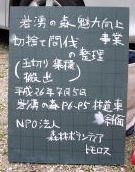 岩湧の森魅力向上
事業
切捨て間伐の整理
(玉切り集積)
(搬出)
平成26年7月5日
岩湧の森P4-P5林道東
斜面
NPO法人
森林ボランティア
トモロス